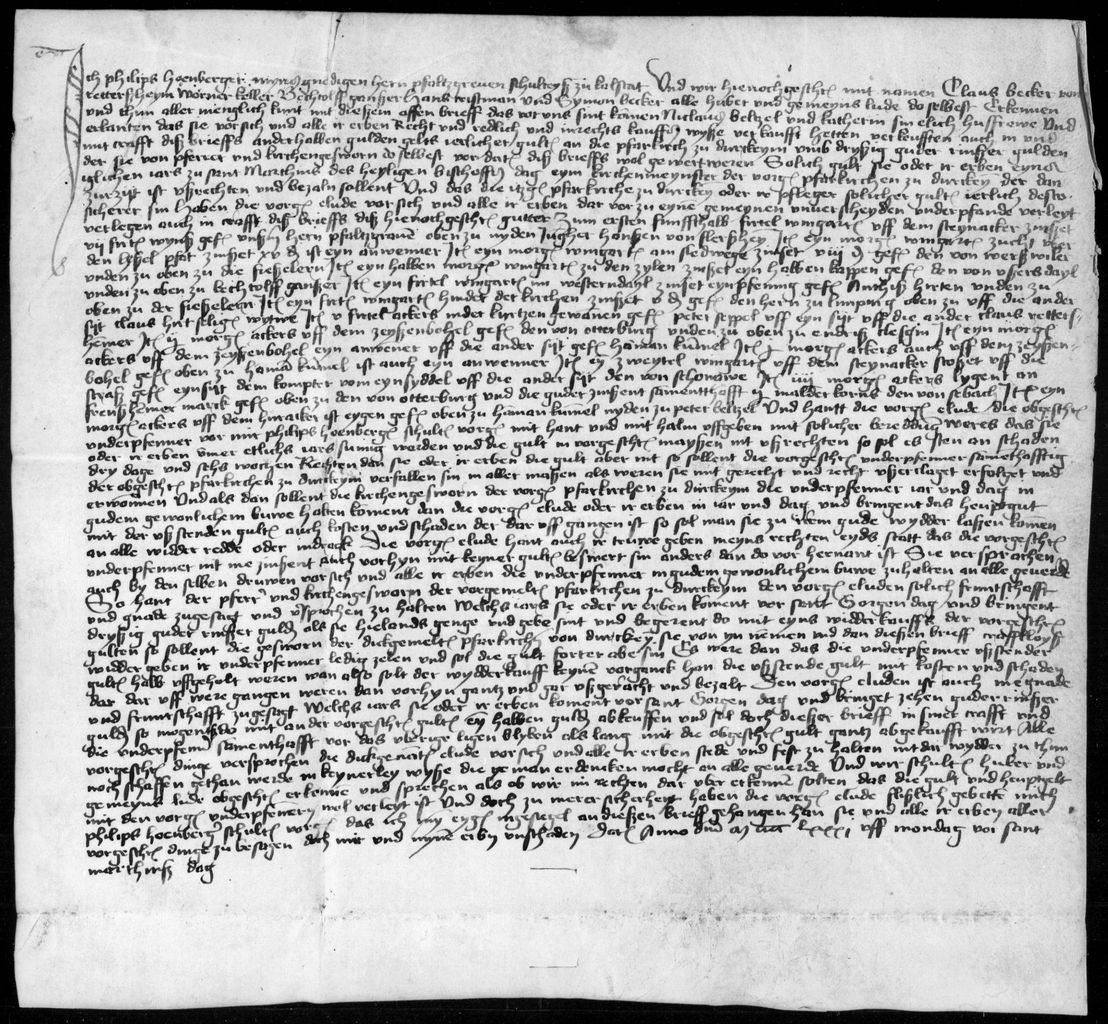 Ich philips Hoenberger myns gnedigen hern pfaltzgreven schulteyß zu kalstat Und wir hienochgeschrn mit namen Claus Becker von
rettersheym Worner keller Bechtolff ganßer hans tristman und Symon becker alle huber und gemeyns lude do selbest Erkennen
und thun aller menglich kunt mit dießem offen brieff das vor uns sint komen Niclaus Beltzel und katherin sin elich hussfrowe Und
erkanten das sie vor sich und alle ir erben Recht und redlich und in rechts kauffs wyße verkaufft hetten verkufften auch in und
mit crafft diß brieffs anderhalben gulden gelts ierlicher gulten an die pfarkirch zu durckeym umb dryßig guder rinscher gulden
der sie von pferrer und kirchengesworn do selbest vor datum diß brieffs wol gewert weren Solich gult sie oder ir erben eynem
iglichen iars zu sant Marthins des heyligen bischoffs dag eym kirchenmeynster der vorgn pfarkirchen zu durckey der dan
zur zijt ist ußrechten und bezaln sollent Und das die itzgn pfarkirche zu durckey oder ir pfleger solicher gulten ierlich dester
sicherer sin haben die vorgn elude vor sich und alle ir erben dar vor zu eyne gemeynen unverscheyden underpfande verleyt
verlegen auch in crafft diß brieffs diß hienochgeschrn gutter Zum ersten funffthalb firtel wingarten uff dem steynacker zinßet
vij firten wynß gefn unßerm hern pfaltzgraven oben zu nyden Jungher hanßen von flerßhey Itn eyn morgen wingarten zucht uber
den lyßel pfat zinßet xv d ist eyn anwenner Itn eyn morgn wingarten am siedwege zinßet viij d gefn den von werßwiler
unden zu oben zu die sießelern Itn eyn halben morgn wingarten zu den zylen zinßet eyn halben kappen gefn den von ußers dayl
unden zu oben zu bechtolff ganßer Itn eyn firtel wingarten im westerndayl zinßet eyn pfening gefn Anthiß hirten unden zu
oben zu der sießelern Itn eyn firtn wingarten hinder der kirchen zinßet v d gefn den hern zu limpurg oben zu uff die ander
sijt claus hut seligen wytwe Itn v firtel ackers inder kurtzen gewanen gefn peter seppel uff eyn sijt uff die ander claus retters-
heimer Itn ij morgn ackers uff dem zeyßenbohel gefn den von otterburg unden zu oben zu endriß clesgin Itn eyn morgn
ackers uff dem zeyßenbohel eyn anwener uff die ander sijt gefn haman kumel Itn j morgn ackers auch uff dem zeyßen-
bohel gefn oben zu haman kumel ist auch eyn anwenner Itn ey zweytel wingart uff dem steynacker stoßet uff die
straß gefn eynsijt dem kompter vom eynsyddel uff die ander sijt den von schonawe Itn iiij morgn ackers lygent an
freinßheimer marck gefn oben zu den von otterburg und die guder zinßent samentthafft ij malder korns den von sebach Itn eyn
morgn ackers uff dem hinracker ist eygen gefn oben zu haman kumel nyden zu peter beltzel Und hantt die vorgn elude die obgeschrn
underpfenner vor mir philips hoenberger schultn vorgn mit hant und mit halm uffgeben mit solicher beredung weres das sie
oder ir erben ummer etlichs iars sumig worden und die gult in vorgeschrn mayßen nit ußrechten so sol es sten an schaden
dry dage und sehs wochen Rechten dan sie oder ir erben die gult aber nit so sollent die vorgeschrn underpfenner samethafftig
der obgeschrn pfarkirchen zu durckeym verfallen sin in aller maßen als weren sie mit gericht und recht ußerclaget erfolget und
erwonnen Und als dan sollent die kirchengesworn der vorgn pfarkirchen zu durckeym die underpfenner iar und dag in
gudem gewonlichem buwe halten koment dan die vorgn elude oder ir erben in iar und dag und bringent das heuptgut
mit der ußstenden gulten auch kosten und schaden der dar uff gangen ist so sol man sie zu irem gude wydder lassen komen
an alle widder redde oder indrack Die vorgn elude hant auch ir truwe geben meyns rechten eyds statt das die vorgeschrn
underpfenner nit me zinßent auch vorhyn mit keyner gulten beswert sin anders dan do vor hernant ist Sie versprachen
auch by den selben druwen vor sich und alle ir erben die underpfenner in gudem gewonlichem buwe zu halten an alle geverde
So hant der pferrer und kirchengesworn der vorgemeltn pfarkirchen zu durckeym den vorgn eluden solich fruntschafft
und gnade zugesagt und versprochen zu halten Welchs iars sie oder ir erben koment vor sant Gorgen dag und bringent
dryßig guder rinscher guldn als sie hielands genge und gebe sint und begerent do mit eyns widderkauffs der vorgeschrn
gulten so sollent die gesworn der dickgemeltn pfarkirchn von durckey sie von yn nemen und dan dießen brieff crafftloyß
widdergeben ir underpfenner ledig zelen und sol die gult forter abe sin Es were dan das die underpfenner ußstender
gulten halb uffgeholt weren wan also solt der wydderkauff keynen vorganck han die ußstende gult mit kosten und schaden
dar dar uff were gangen weren dan vorhyn gantz und gar ußgeracht und bezalt Den vorgn eluden ist auch me gnade
und fruntschafft zugesagt Welchs iars sie oder ir erben koment vor sant Gorgen dag und bringet zehen guder rinßer
guldn so mogent sie do mit an der vorgeschrn gulten ey halben guldn abkeuffen und sol doch dießer brieff in siner crafft und
die underpfenner samenthafft vor das uberige ligen blyben als lang mit die obgeschrn gult gantz abgekaufft wirt Alle
vorgeschrn dinge versprochen die dickgenantn elude vor sich und alle ir erben stede und fest zu halten nit dar wydder zu thun
noch schaffen gethan werde in keynerley wyße die yeman erdencken mocht an alle geverde Und wir schultn huber und
gemeyns lude obgeschrn erkenne und sprechen als ob wir im rechten dar uber erkennen solten das die gult und heuptgelt
mit den vorgn underpfennern wol verleyt ist Und doch zu merer sicherheyt haben die vorgn elude flißlich gebetten mich
philips hoenberger schultn vorgn das ich my eygn ingesiegel an dießen brieff gehangen han sie und alle ir erben aller
vorgeschrn dinge zu besagen doch mir und myne erbn unschaden Datn Anno dni m cccc lxxxi uff mondag vor sant
marthinß dag